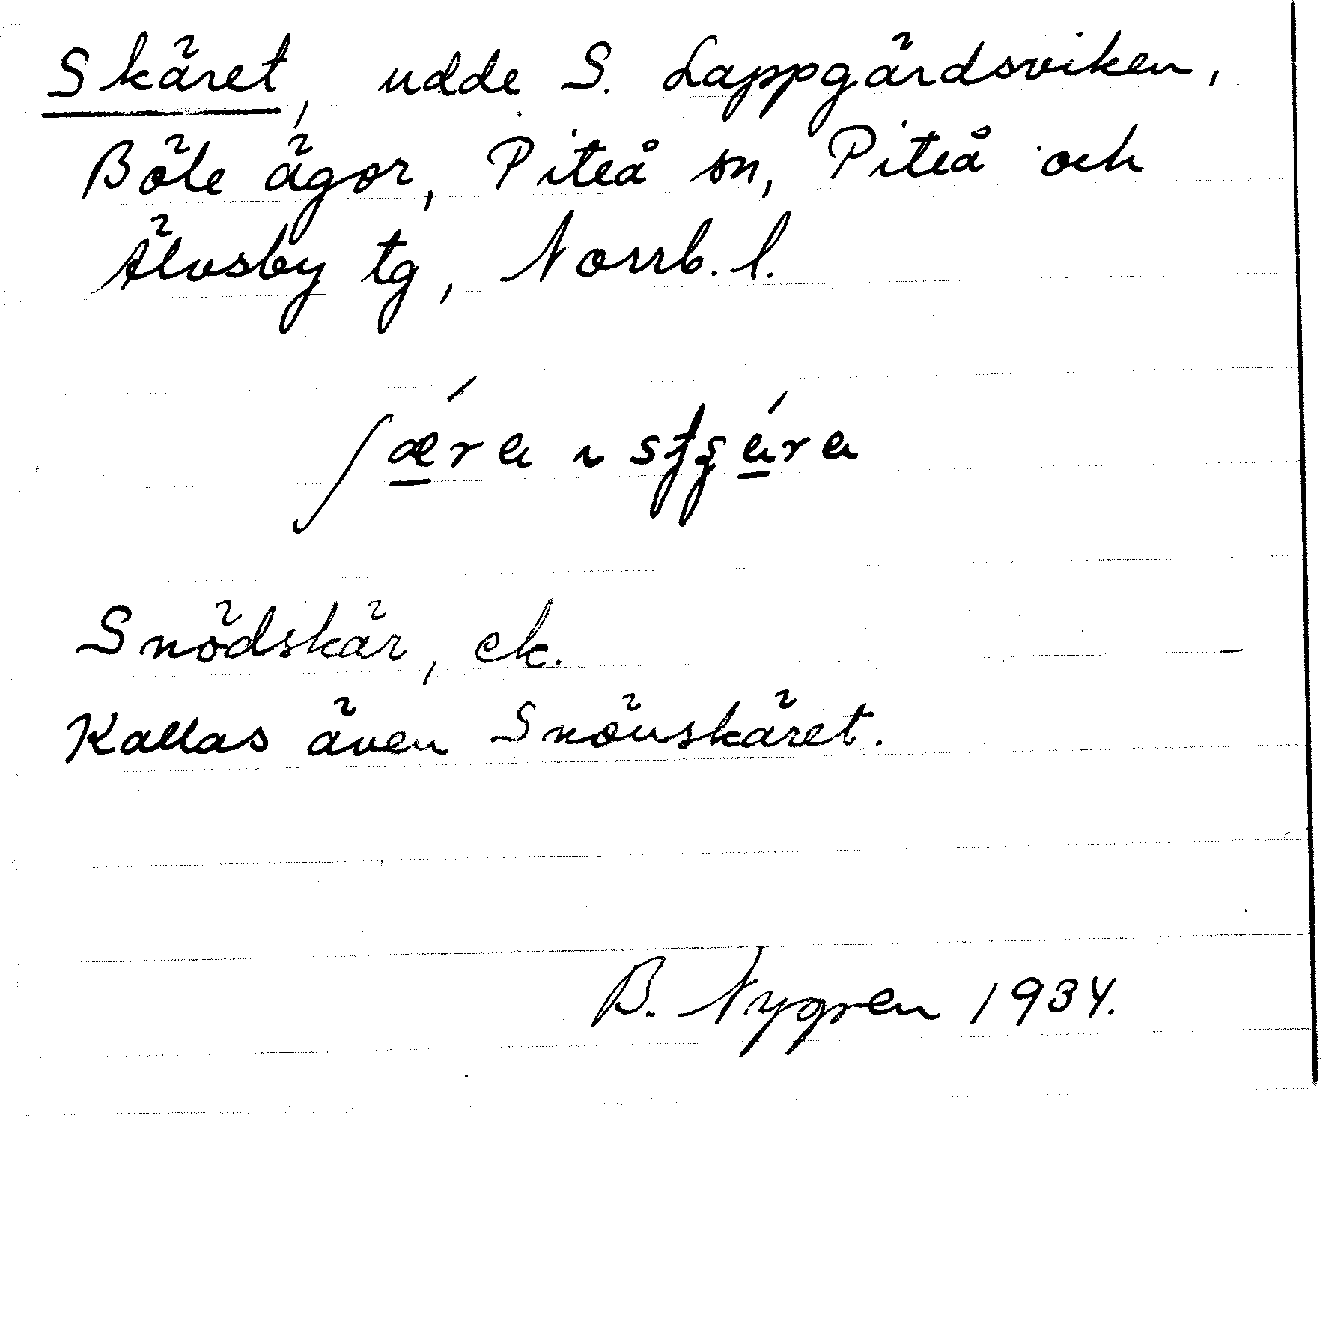 Skäret, udde S. Lappgärdsviken,
Böle ägor, Piteå sn, Piteå och
Älvsby tg, Norrb. l.
Snödskär, ek.
Kallas även Snönskäret.
B. Nygren 1934.